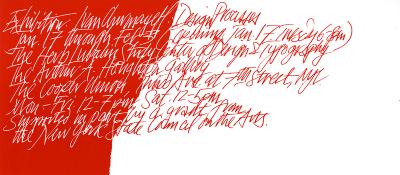 Exhibition: Ivan Chermayeff Design Processes
Jan. 17 through Feb. opening Jan. 17 Tuesday 6-8pm)
The Herb Lubalin Study Center of Design & Typography
The Arthur A. Houghton Gallery
The Cooper Union Third Ave. at 7th Street, NYC
Mon-Fri 12-7pm Sat. 12-5pm
Supported in part by a grant from
the New York State Council on the Arts.